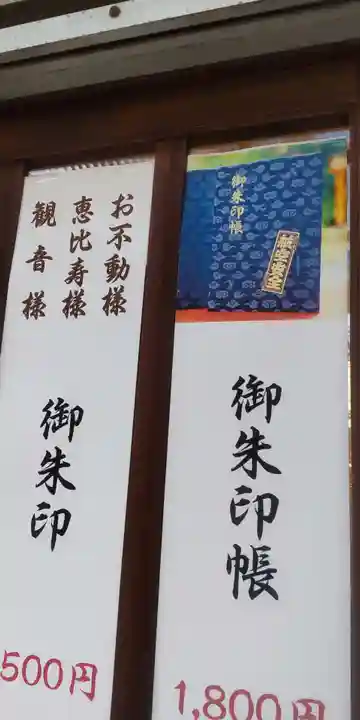 お不動様
恵比寿様
観音様
御朱印
500円
御朱印帳
航空安全
御朱印帳
1,800円